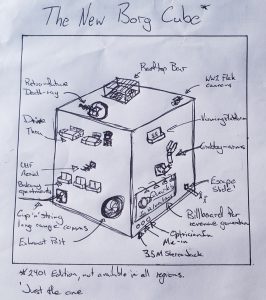 The New Borg Cube*
Rooftop Bar
Retro-future
Death-ray
WW2 Flak
cannons
Drive
Thru
Viewing Platform
UHF
Aerial
Grabby-arms
Balcony
apartments
Escape
Slide'
Cup'n'string
long range comms
Billboard for
revenue generation
Exhaust Port
Optrician
Me-in
3.5MM Stereo Jack
*2401 Edition, not available in all regions.
'Just the one